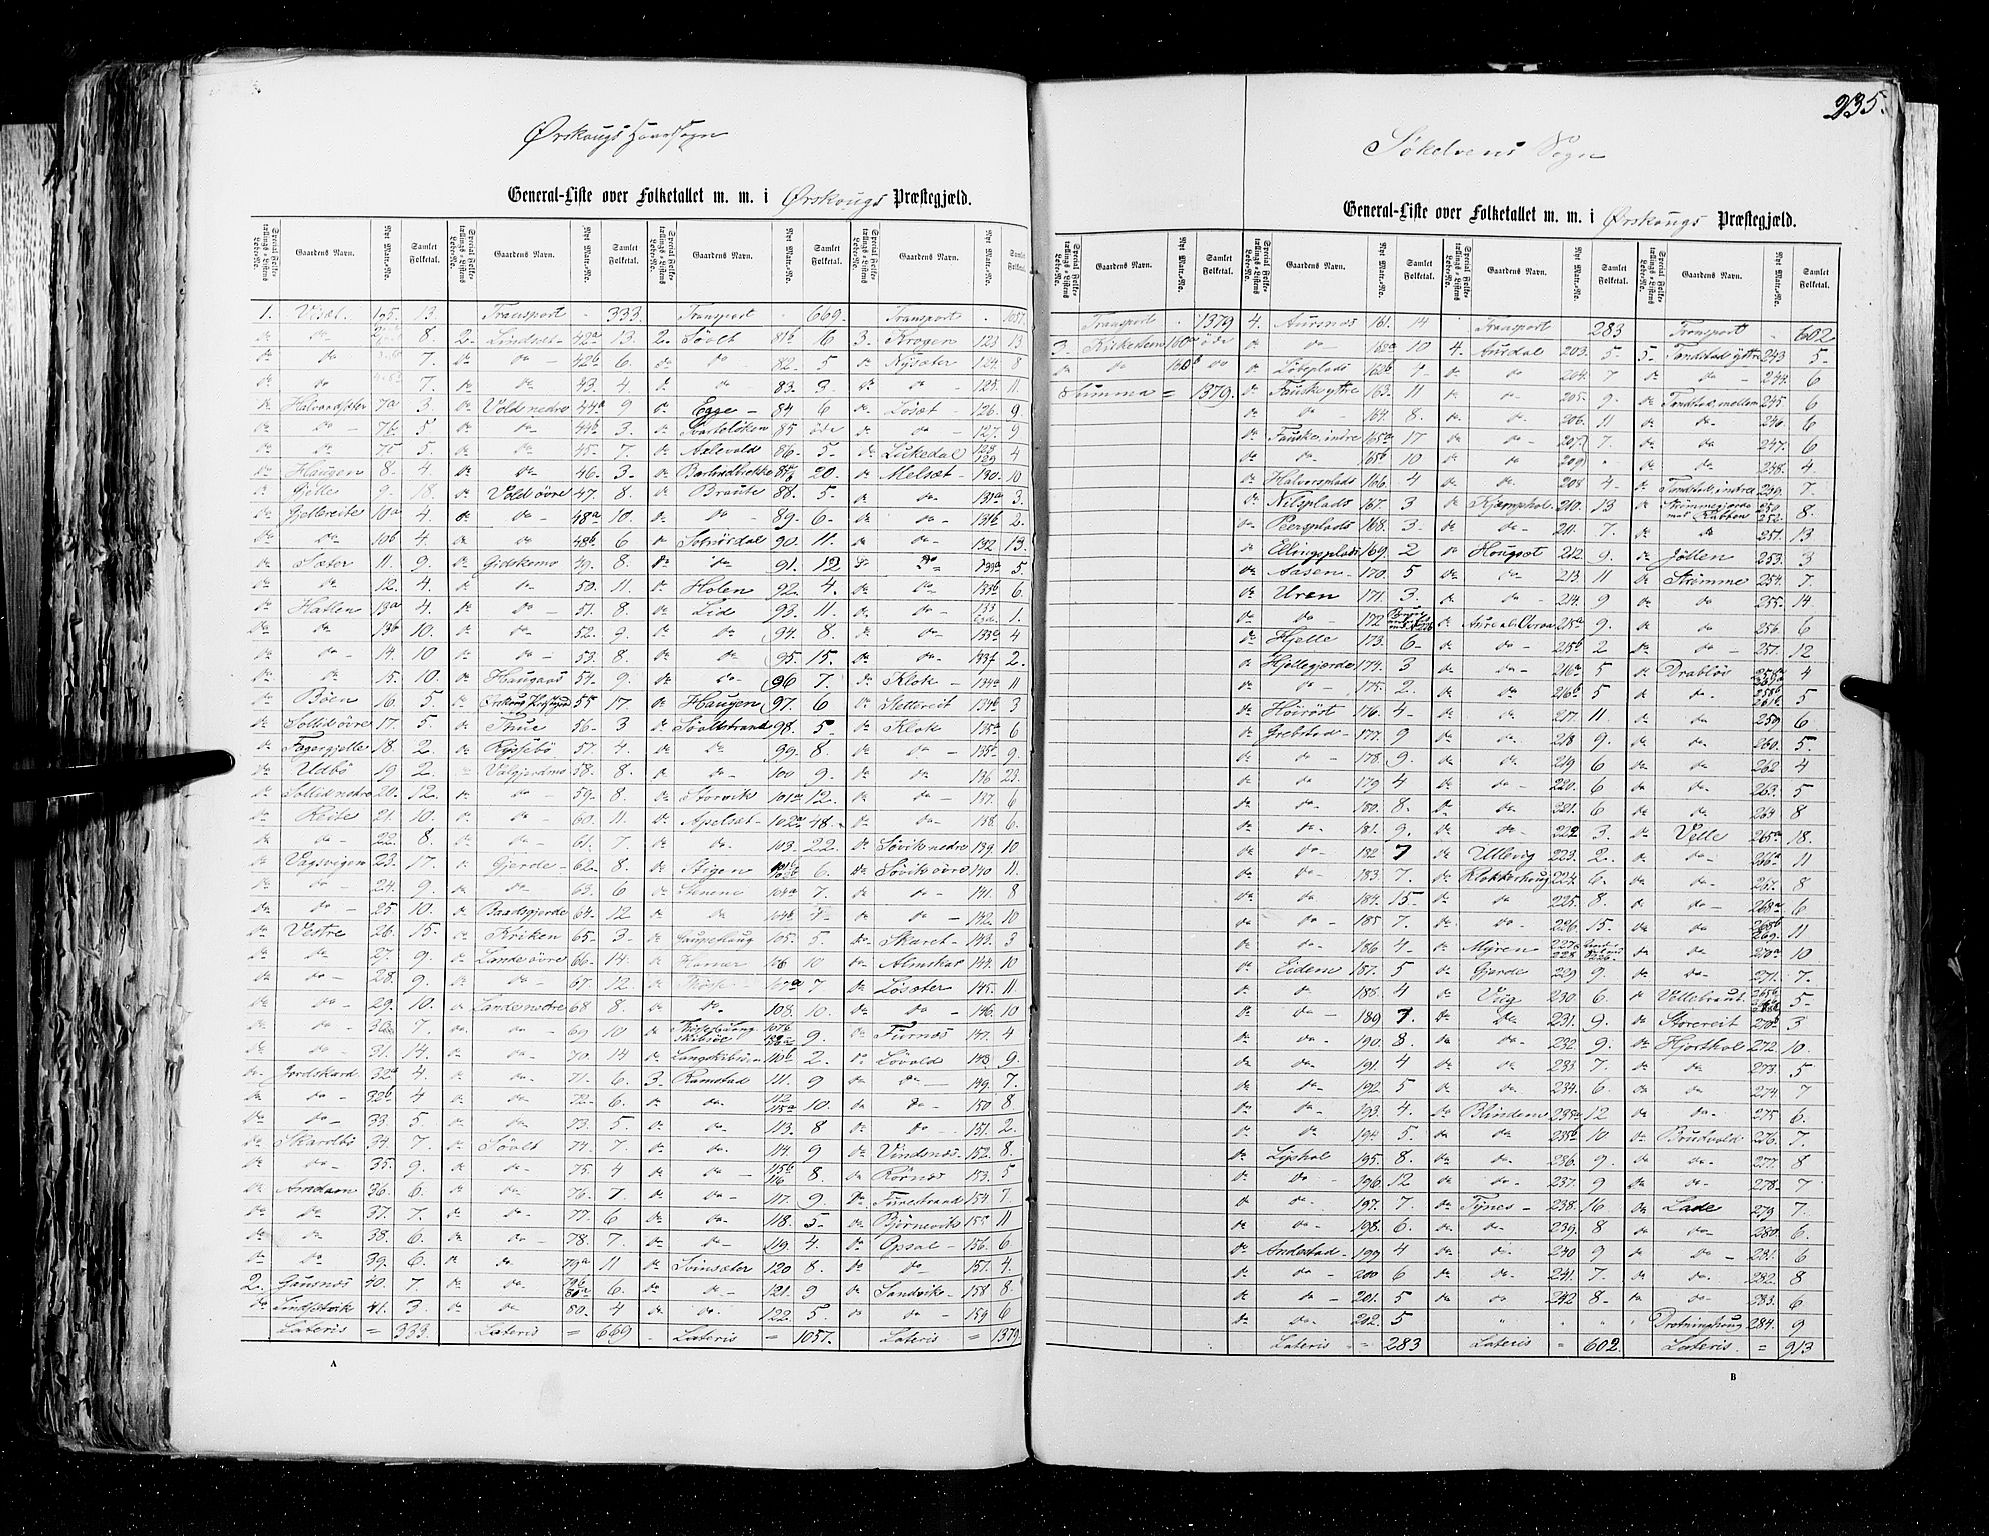 235.
Ørskougs Hovedsogn
General-Liste over Folketallet m. m. i Ørskougs Præstegjæld.
Special Folketællings-Listens Løbe-No. Gaardens Navn. Nyt Matr.-No. Samlet Folketal.
1. 13.
8.
7.
7.
7a 3.
do do 7b 5
do 7c 5.
do Haugen 8. 4.
Gjelle 9. 18.
do Gjellereite 10a 4.
do do 10b 4
do Sæter 11. 9.
do do 12. 4.
do Hatlen 13a 4.
do do 13b 10.
do do 14. 10
do do 15. 10
do Bøen 16. 5.
do Sollid øvre 17. 5.
do Fagergjelle 18. 2.
do Udbö 19 2.
do Sollid nedre 20. 12.
do Reite 21. 10.
do do 22. 8.
do Vagsvigen 23. 17.
do do 24. 9.
do do 25. 10.
do Vestre 26. 15.
do do 27. 9.
do do 28. 9.
do do 29. 10.
do do 30 7.
do do 31. 14.
do Jordskard 32a 4.
do do 32b 4
do do 33. 5
do Skardbö 34. 7.
do do 35. 9.
do Amdam 36. 6.
do do 37. 7.
do do 38. 6.
do do 39. 6.
2. Gausnæs 40. 7.
do 41. 3.
Lateris = 333.
Transport 333.
2. Lindset 42a 13
do do 42b 6.
do do 43. 4
do Vold nedre 44a 9
do do 44b 3.
do do 45 7.
do do 46. 3.
do Vold øvre 47. 8.
do do 48a 10.
do do 48b 6
do Gidskemo 49. 8.
do do 50. 11
do do 51. 8.
do do 52. 9.
do do 53. 8.
do Haugaas 54. 9.
do 55 17
do Thue 56. 3
do 57 4.
58. 8.
do do 59. 8.
do do 60. 11
do do 61. 7.
do Gjerde 62. 8
do do 63. 6
do Baadsgjerde 64. 12
do Kriken 65. 3.
do Lande øvre 66. 14.
do do 67. 12.
do Lande nedre 68 8
do do 69 10
do do 70. 14
do do 71. 6.
do do 72. 6.
do do 73. 5
do Søvlt 74. 7.
do do 75. 4
do do 76. 7
do do 77. 6
do do 78. 7.
do do 79a 11
do do 79b 80a 6.
do do 80. 4
Lateris = 669
Transport 669.
2. Søvlt 81b 6
do do 82. 5
do do 83. 3.
do Egge 84 6
do 85 øde
do 86. 5
do 87 20.
do Braute 88. 5.
do do 89. 6
do 90. 11.
do do 91. 12
do Holen 92. 4.
do Lid 93. 11.
do do 94. 8.
do do 95. 15.
do do 96 7.
do Haugen 97. 6
do Søvltstrand 98. 5
do do 99. 8.
do do 100 9.
do Storvik 101a 12.
do Apelsæt 102a 48.
do do 103. 22.
do Stigen 6.
do Stenene 104a 7.
do do 104b 4
do Gaupehaug 105. 5
do Hamar 106 10
107a 7
do do 108. 10.
9.
do 110b 2.
3. Ramstad 111. 9
do do 112 115a 10.
do do 113. 8
do do 114. 9
do do 115b 116 8
do do 117. 9
do do 118. 5
do do 119. 4.
do Svinsæter 120 8.
do do 121. 9
do do 122. 5.
Lateris = 1057.
Transport 1057.
3. Krogen 123 13
do Nysæter 124. 8
do do 125. 11.
do Løsæt 126. 9.
do do 127. 9
do 128 129 4
do Melsæt 130. 10
do do 131a 3.
do do 131b 2.
do do 132 13.
do do 133a 5
do do 133b 6
do do 1.
do do 4
do do 133f 2.
do Klok 134a 11
do Slettereit 134b 3
do Klok 135a 6
do do 135b 9.
do do 136 23.
do do 137. 6
do do 138. 6.
do Søvik nedre 139. 10
do Søvik øvre 140 11.
do do 141. 8
do do 142. 10
do Skaret 143. 3
do Almskar 144. 10
do Løsæter 145. 11
do do 146. 10
do Furnæs 147. 4
do Løvold 148 9.
do do 149. 7.
do do 150 8
do do 151. 2.
do Vindsnæs 152. 8.
do Rørnæs 153. 5
do Furestrand 154. 7.
do Bjørnevik 155 11
do Opsal 156. 6
do do 157. 4.
do Sandvik 158 8.
do do 159 6
Lateris = 1379.
A
Søkelvens Sogn
General-Liste over Folketallet m. m. i Ørskougs Præstegjæld.
Special Folketællings-Listens Løbe-No. Gaardens Navn. Nyt Matr.-No. Samlet Folketal.
Transport 1379
3. 160a øde
do do 160b do
Summa = 1379.
4. Aursnæs 161. 14
do do 162a 10
do Løbeplads 162b 4
do Fauske yttre 163. 11
do do 164. 8
do Fauske indre 165a 17
do do 165b 10
do Halvorsplads 166. 4
do Nilsplads 167. 3
do Peersplads 168. 3.
do Ellingsplads 169. 2
do Aasen 170. 5
do Uren 171. 3.
do do 172
do Hjelle 173. 6
do Hjellegjerde 174. 3
do do 175. 2.
do Høirøst 176. 4
do Grebstad 177. 9
do do 178. 9.
do do 179 4
do do 180. 8.
do do 181. 9.
do do 182 7
do do 183 7.
do do 184. 15
do do 185 7.
do do 186 4
do Eidem 187. 5
do do 188. 4
do do 189 7.
do do 190. 8.
do do 191. 4
do do 192. 5
do do 193. 4.
do do 194 5.
do Lyshol 195. 8.
do do 196 12
do do 197. 7
do do 198. 6.
do Andestad 199 4
do do 200 6
do do 201. 5
do do 202. 5
Lateris = 283
Transport 283
4. Ausdal 203. 5
do do 204. 7
do do 205. 9.
do do 206. 11
do do 207. 7.
do do 209.
do do 208 4
do Kjæmpehol 210. 13
do do 211 7.
do Hougset 212 9.
do do 213. 11
do do 214. 9
do 215a 9.
do do 215b 2
do do 216a 5
do do 216b 5
do do 217. 11
do do 218 9.
do do 219 6
do do 220. 6
do do 221. 6
do do 222 3.
do Ullevig 223. 2.
do Klokkerhoug 224. 6.
do do 225. 8.
do do 226. 15.
do Myren 227 228
do Gjerde 229 9.
do Vig 230. 6.
do do 231. 9.
do do 232 9.
do do 233 7.
do do 234. 6
do Blindem 235a 12
do do 235b 10
do do 236. 9.
do do 237. 9
do Tynes 238. 16
do do 239. 8
do do 240 9
do do 241. 7.
do do 242 8
Lateris = 602.
Transport 602
5. Tandstad yttre 243 5
do do 244. 6
do Tandstad mellem 245 6
do do 246. 6
do do 247. 6
do do 248. 4
do Tandstad indre 249. 7.
250. 252. 8.
do do 251. 13
do Jølten 253. 3
do Strømme 254. 7.
do do 255. 14
do do 256. 6
do do 257. 12
do Drabløs 4
do do 5
do do 259 6
do do 260. 5.
do do 262 4
do do 263. 5
do do 264 8
do Velle 265a 18.
do do 266a 11
do do 267. 8
do do 268a 6
do do 269. 11
do do 270a 10
do do 271. 7.
do Vellebraut 5
do Storereit 270b 3
do Hjorthol 272. 10.
do do 273. 5
do do 274. 7
do do 275 6.
do Brudvold 276. 7.
do do 277. 8
do do 278. 7
do Lade 279. 7.
do do 280. 6.
do do 281. 6
do do 282. 8
do do 283. 6
Drotninghoug 284. 9
Lateris = 913
B